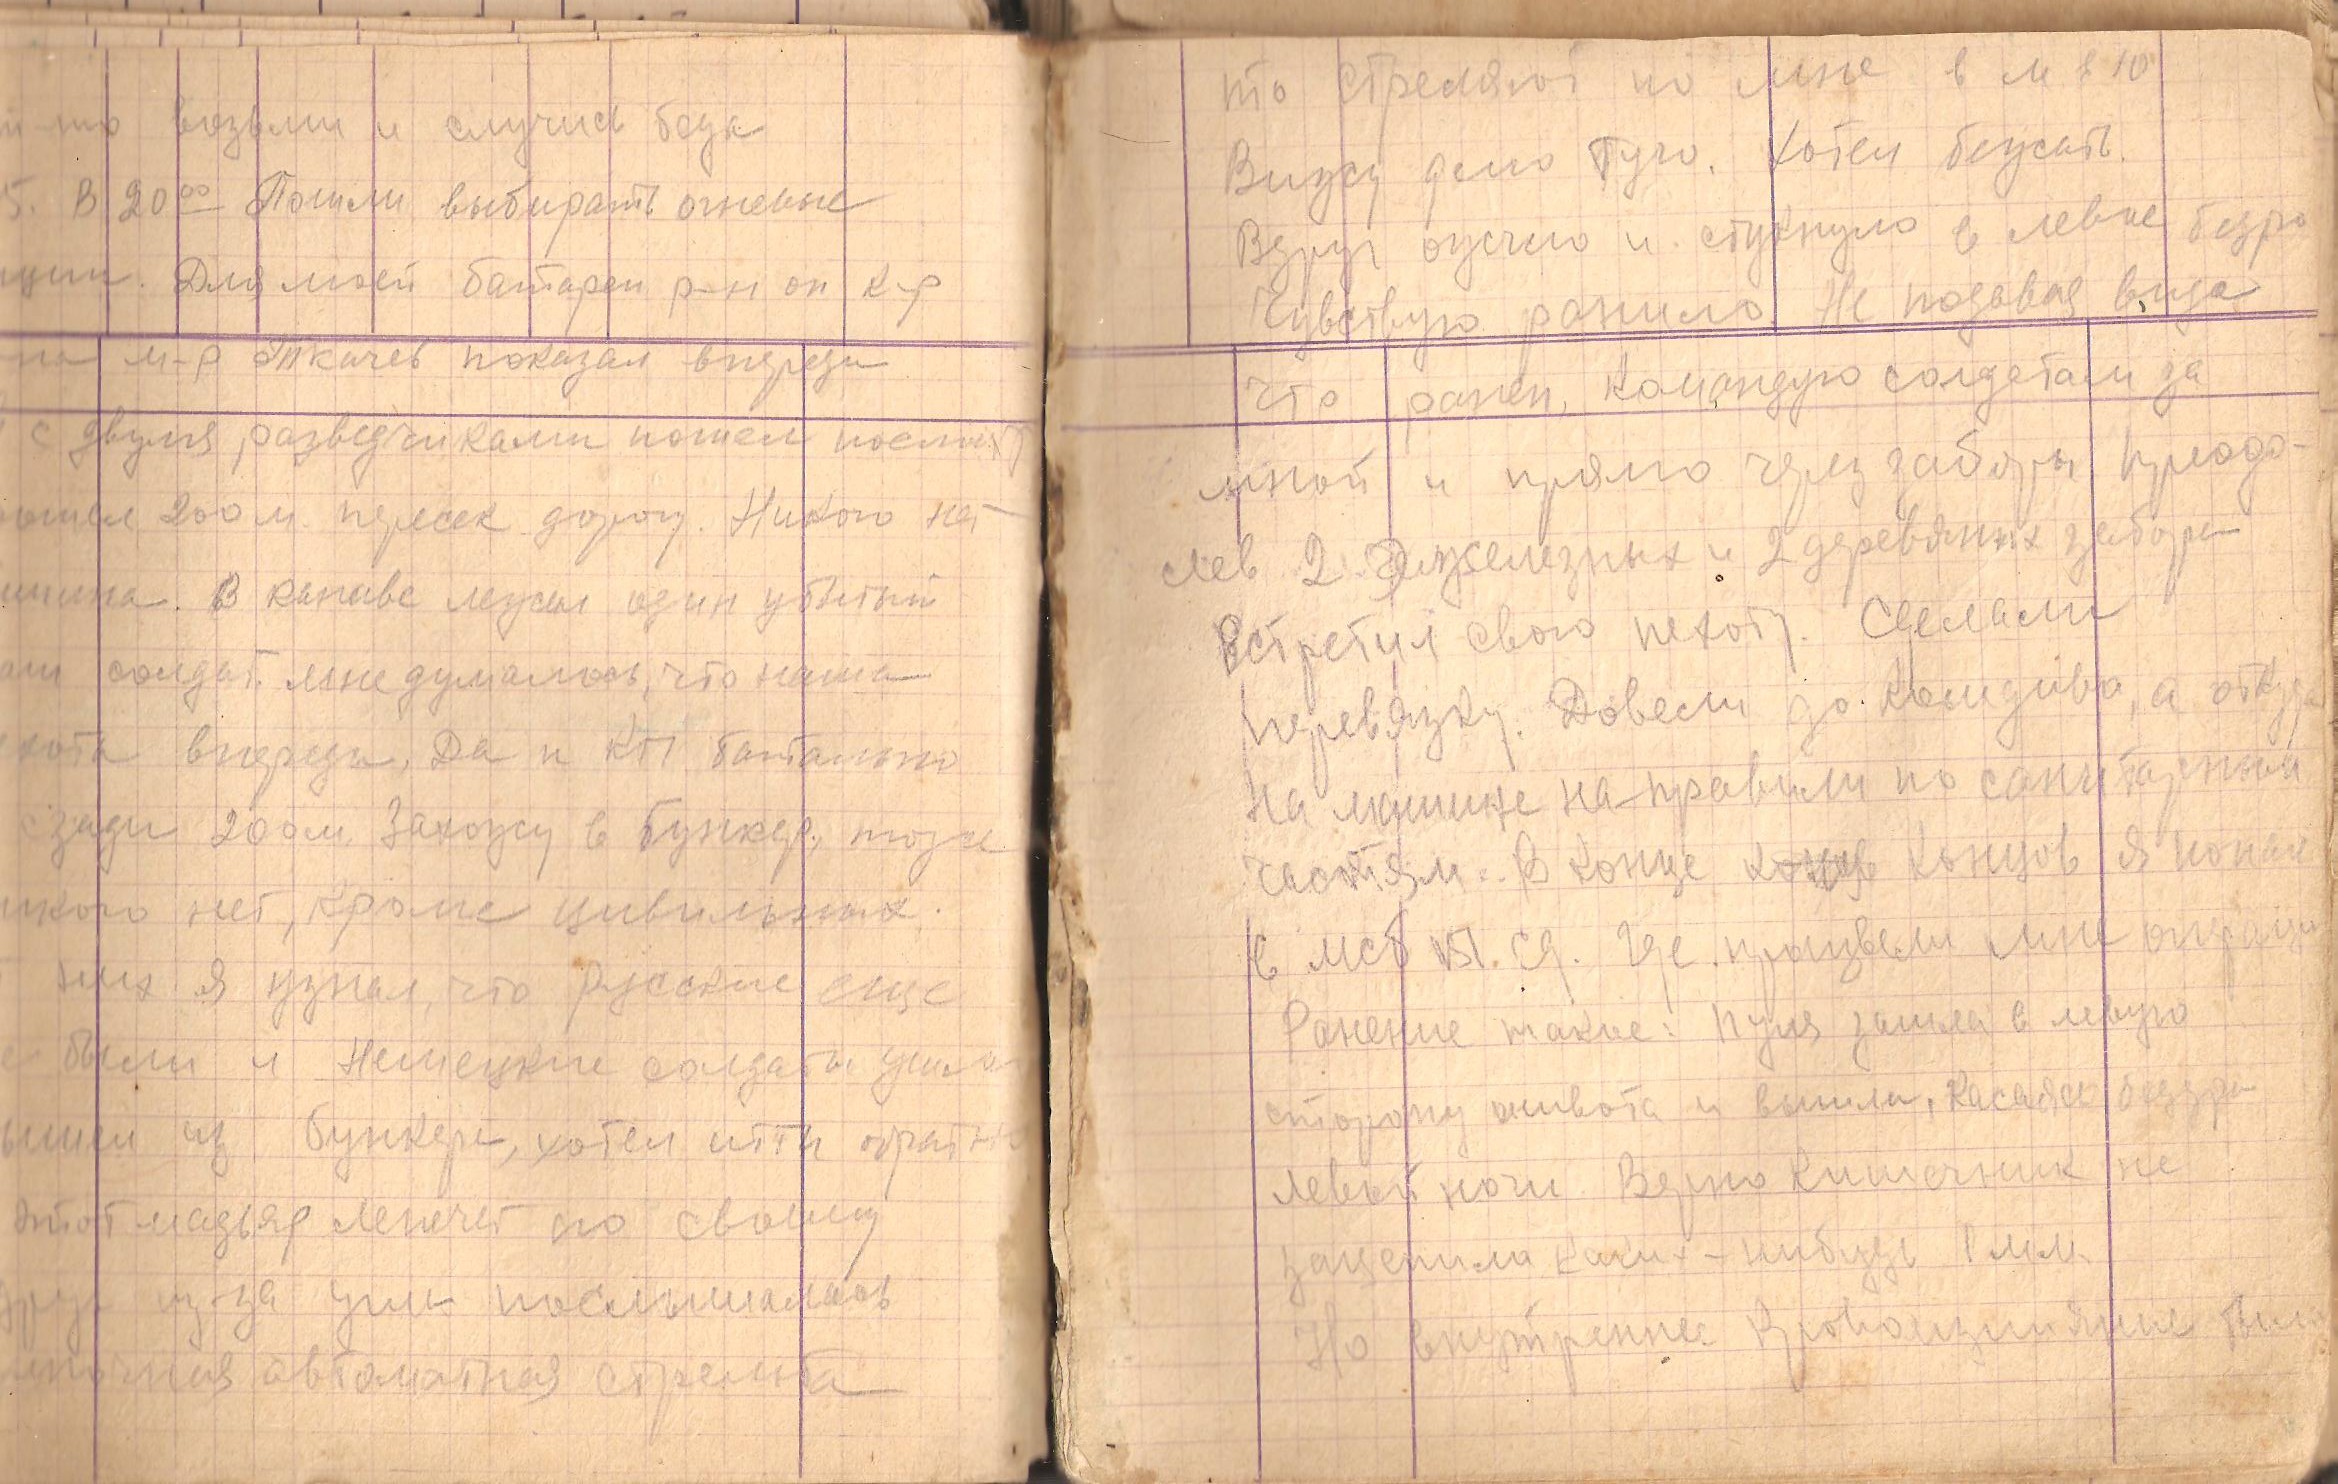 возьми и случись беда
5. В 20 00 Пошли выбирать огневые
ции. Для моей батареи р-н он к-р
м-р Ткачев показал впереди
с двумя разведчиками пошел
200 м. пересек дорогу. Никого нет
В канаве лежал один убитый
солдат. мне думалось, что наша
хота впереди, Да и КП батально
сзади 200 м. Захожу в бункер, тоже
икого нет, кроме цивильных.
них я узнал, что русские еще
е были и Немецкие солдаты ушли
ышел из бункера, хотел итти обратно
этот мадьяр лепечет по своему
друг из-за угла послышалась
автоматная стрельба
что стреляют по мне в м в 10
Вижу дело туго. Хотел бежать.
Вдруг ожгло и стукнуло в левое бедро
Чувствую ранило. Не подавая вида
что ранен, командую солдатам за
мной и прямо через заборы преодо-
лев 2 железных и 2 деревянных забора
Встретил свою пехоту. Сделали
перевязку. Довели до комдива, а откуда
на машине направили по санитарным
частям. В конце концов я попал
в мсб СД. Где произвели мне операци
Ранение такое: пуля зашла в левую
сторону живота и вышла, касаясь бедра
левой ноги. Верно кишечник не
зацепила каких-нибудь 1 мм.
Но внутреннее кровоизлияние был